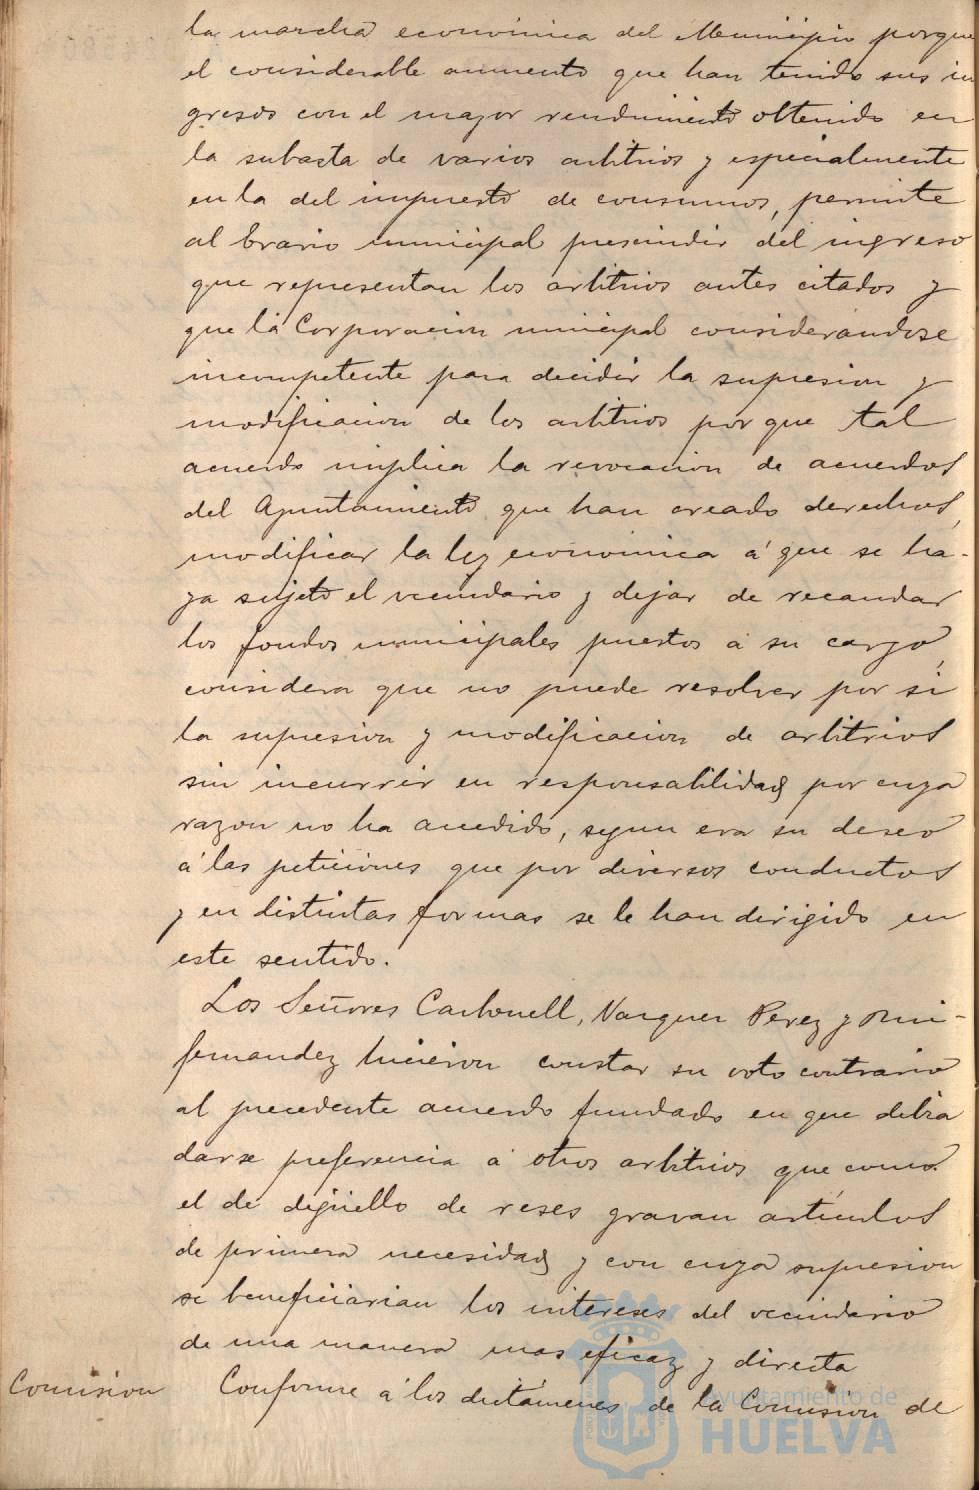 la marcha económica del Municipio porque
el considerable aumento que han tenido sus in
gresos con el mayor rendimiento obtenido en
la subasta de varios arbitrios y especialmente
en la del impuesto de consumos, permite
al Erario municipal prescindir del ingreso
que representan los arbitrios antes citados y
que la Corporacion municipal considerandose
incompetente para decidir la supresion y
modificacion de los arbitrios por que tal
acuerdo implica la revocacion de acuerdos
del Ayuntamiento que han creado derechos,
modificar la ley economica á que se ha-
ya sujeto el vecindario y dejar de recaudar
los fondos municipales puestos á su cargo,
considera que no puede resolver por si
la supresion y modificacion de arbitrios
sin incurrir en responsabilidad por cuya
razon no ha accedido, segun era su deseo
á las peticiones que por diversos conductos
y en distintas formas se le han dirigido en
este sentido.
Los Señores Carbonell, Vazquez Perez y
fernandez hicieron constar su voto contrario
al precedente acuerdo fundado en que debia
darse preferencia á otros arbitrios que como
el de degüello de reses gravan artículos
de primera necesidad y con cuya supresion
se beneficiarian los intereses del vecindario
de una manera mas eficaz y directa
Comision Conforme á los dictámenes de la Comision de
Ayuntamiento de
HUELVA